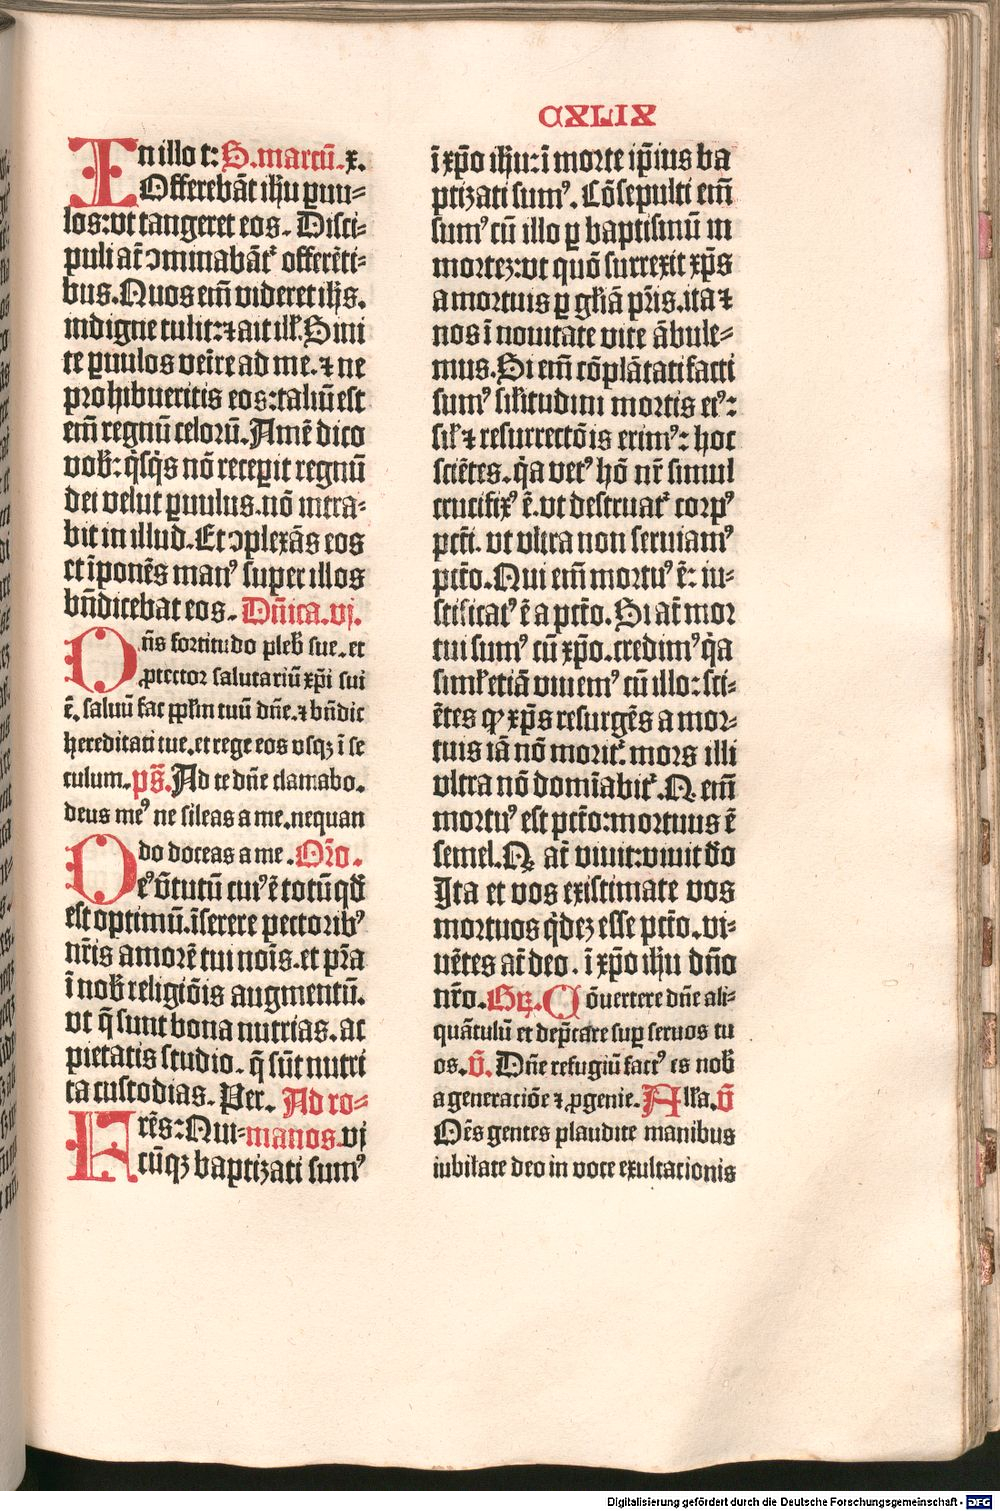 CXLIX
In illo t: S. marcū. x.
Offerebāt ihū puu-
los: vt tangeret eos. Disci-
puli at̄ ↄminabāt᷑ offerēti-
bus. Quos em̄ videret ihs.
indigne tulit: ⁊ ait ill. Sini
te puulos veīre ad me. ⁊ ne
prohibueritis eos: taliū est
em̄ regnū celorū. Amē dico
vob: q̇sq̇s nō recepit regnū
dei velut puulus. nō intra-
bit in illud. Et ↄplexās eos
et īponēs manꝰ super illos
bn̄dicebat eos. Dn̄ica. vj.
Dn̄s fortitudo pleb sue. et
ꝓtector salutariū xp̄i sui
ē. saluū fac ppl̄m tuū dn̄e. ⁊ bn̄dic
hereditati tue. et rege eos vsqꝫ ī se
culum. ps̄. Ad te dn̄e clamabo.
deus meꝰ ne sileas a me. nequan
do doceas a me. Or̄o.
Deꝰ v̄tutū cuiꝰ ē totū qd̄
est optimū. īserere pectoribꝰ
nr̄is amorē tui nōis. et pr̄a
ī nob religiōis augmentū.
vt q̄ sunt bona nutrias. ac
pietatis studio. q̄ sūt nutri
ta custodias. Per. Ad ro-
Frēs: Qui- manos. vj
cūqꝫ baptizati sumꝰ
ī xp̄o ihū: ī morte ip̄ius ba
ptizati sumꝰ. Cōsepulti em̄
sumꝰ cū illo ꝑ baptismū in
mortez: vt quō surrexit xp̄s
a mortuis ꝑ gl̄iā pr̄is. ita ⁊
nos ī nouitate vite ābule-
mus. Si em̄ cōplātati facti
sumꝰ sil̄itudini mortis eiꝰ:
sil̄ ⁊ resurrectōis erimꝰ: hoc
sciētes. q̇a vetꝰ hō nr̄ simul
crucifixꝰ ē. vt destruat᷑ corpꝰ
pcti. vt vltra non seruiamꝰ
pctō. Qui em̄ mortuꝰ ē: iu-
stificatꝰ ē a pctō. Si at̄ mor
tui sumꝰ cū xp̄o. credimꝰ q̇a
siml̄ etiā viuemꝰ cū illo: sci-
ētes qꝙ xp̄s resurgēs a mor-
tuis iā nō morit᷑. mors illi
vltra nō domīabit᷑. Q em̄
mortuꝰ est pctō: mortuus ē
semel. Qꝫ at̄ viuit: viuit d̄o
Ita et vos existimate vos
mortuos q̇dez esse pctō. vi-
uētes at̄ deo. ī xp̄o ihū dn̄o
nr̄o. Gr̄. Cōuertere dn̄e ali-
quātulū et dep̄care sup seruos tu
os. v̄. Dn̄e refugiū factꝰ es nob
a generaciōe ⁊ ꝓgenie. All̄a. v̄
Oēs gentes plaudite manibus
iubilate deo in voce exultacionis
Digitalisierung gefördert durch die Deutsche Forschungsgemeinschaft - DFG